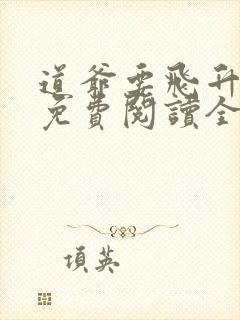 道爺要飛升
免費閱讀全
項英